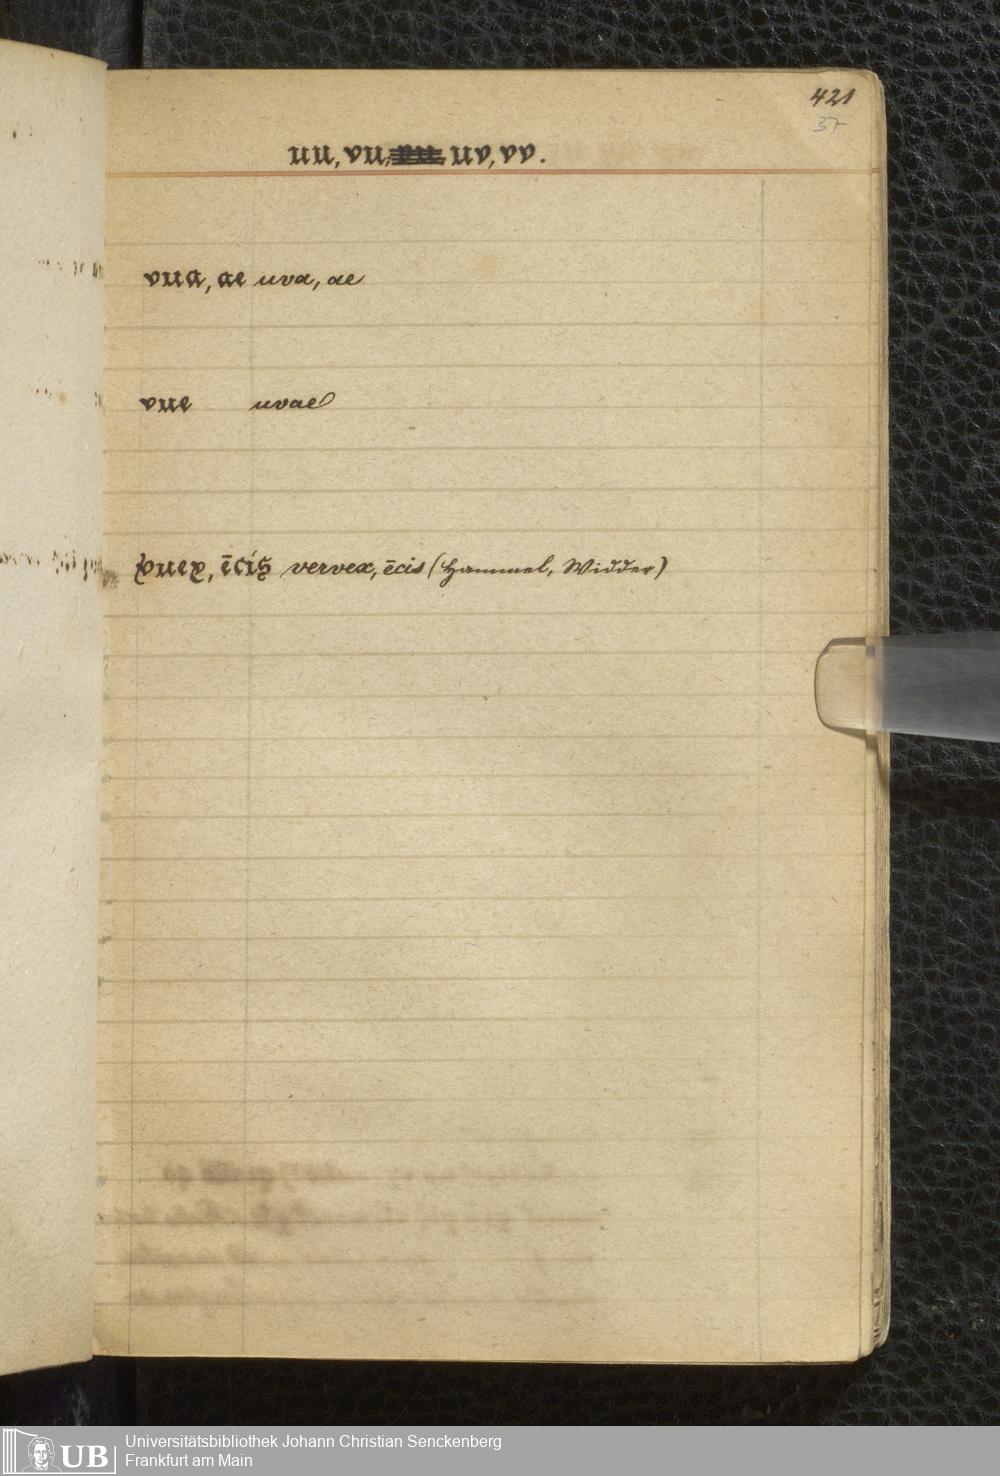 421
37
uu, vu, uv, vv.
vua, ae uva, ae
vue uvae
vuex, ēcis vervex, ēcis (Hammel, Widder)
UB Universitätsbibliothek Johann Christian Senckenberg
Frankfurt am Main